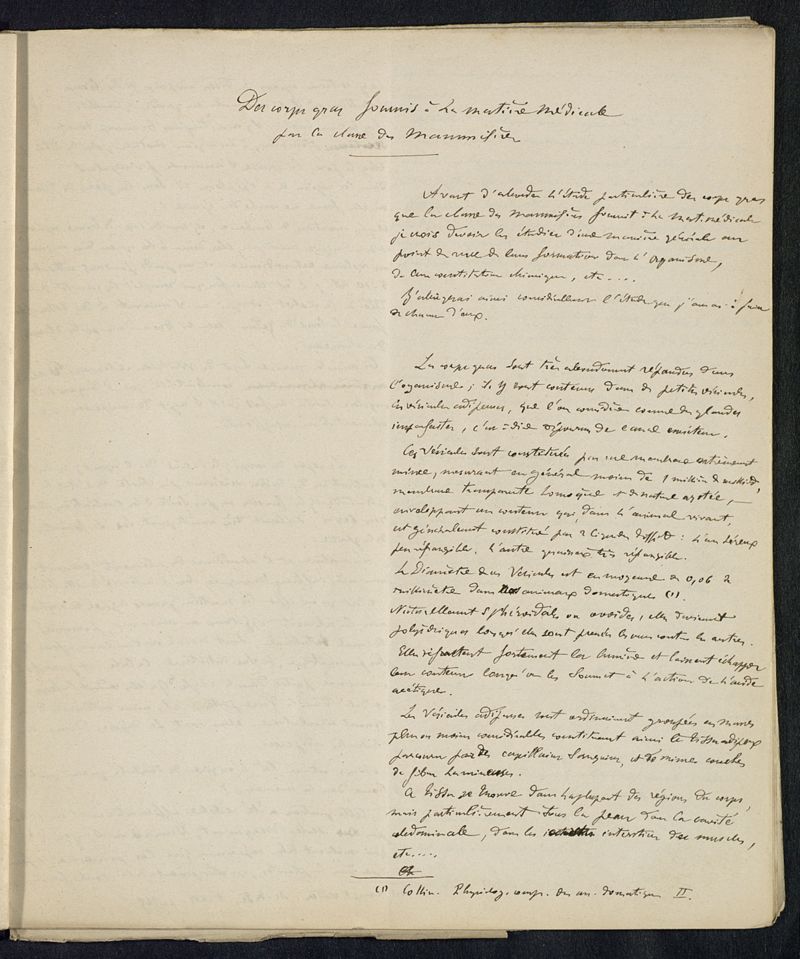 Des corps gras fournis à la matière médicale
par la classe des Mammifères
Avant d'aborder l'étude particulière des corps gras
que la classe des Mammifères fournit à la mat. médicale
je crois devoir les étudier d'une manière générale au
point de vue de leur formation dans l'organisme,
de leur constitution chimique, etc....
J'abrégerai ainsi considérablement l'étude que j'aurai à faire
de chacun d'eux.
Les corps gras sont très abondamment répandus dans
l'organisme; ils y sont contenus dans de petites vésicules,
les vésicules adipeuses, que l'on considère comme des glandes
imparfaites, c'est à dire dépourvues de canal excréteur.
Ces vésicules sont constituées par une membrane extrêmement
mince, mesurant en général moins de 1 millième de millimètre,
membrane transparente homogène et de nature azotée,
enveloppant un contenu qui, dans l'animal vivant,
est généralement constitué par 2 liquides : l'un séreux
peu réfrangible, l'autre graisseux très réfrangible.
Le Diamètre de ces Vésicules est en moyenne de 0,06 de
millimètre dans nos animaux domestiques (1).
Naturellement sphéroïdales ou ovoïdes, elles deviennent
polyédriques lorsqu'elles sont pressées les unes contre les autres.
Elles réfractent fortement la lumière et laissent échapper
leur contenu lorsqu'on les soumet à l'action de l'acide
acétique.
Les Vésicules adipeuses sont ordinairement groupées en masses
plus ou moins considérables constituant ainsi le tissu adipeux
parcouru par des capillaires sanguins, et de minces couches
de fibres lamineuses.
Ce tissu se trouve dans la plupart des régions du corps,
mais particulièrement sous la peau dans la cavité
abdominale, dans les interstices des muscles,
etc....
(1) Collin. Physiolog. comp. des an. domestiques II.